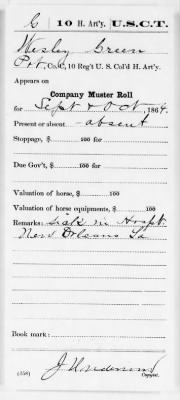 C 10 H. Art'y. U.S.C.T.
Wesley Green
Pvt, Co. C, 10 Reg't U. S. Col'd H. Art'y.
Appears on
Company Muster Roll
for Sept & Oct, 1864.
Present or absent absent
Stoppage, $ 100 for
Due Gov't, $ 100 for
Valuation of horse, $ 100
Valuation of horse equipments, $ 100
Remarks: Sick in Hospt
New Orleans La
Book mark:
(358) Copyist.